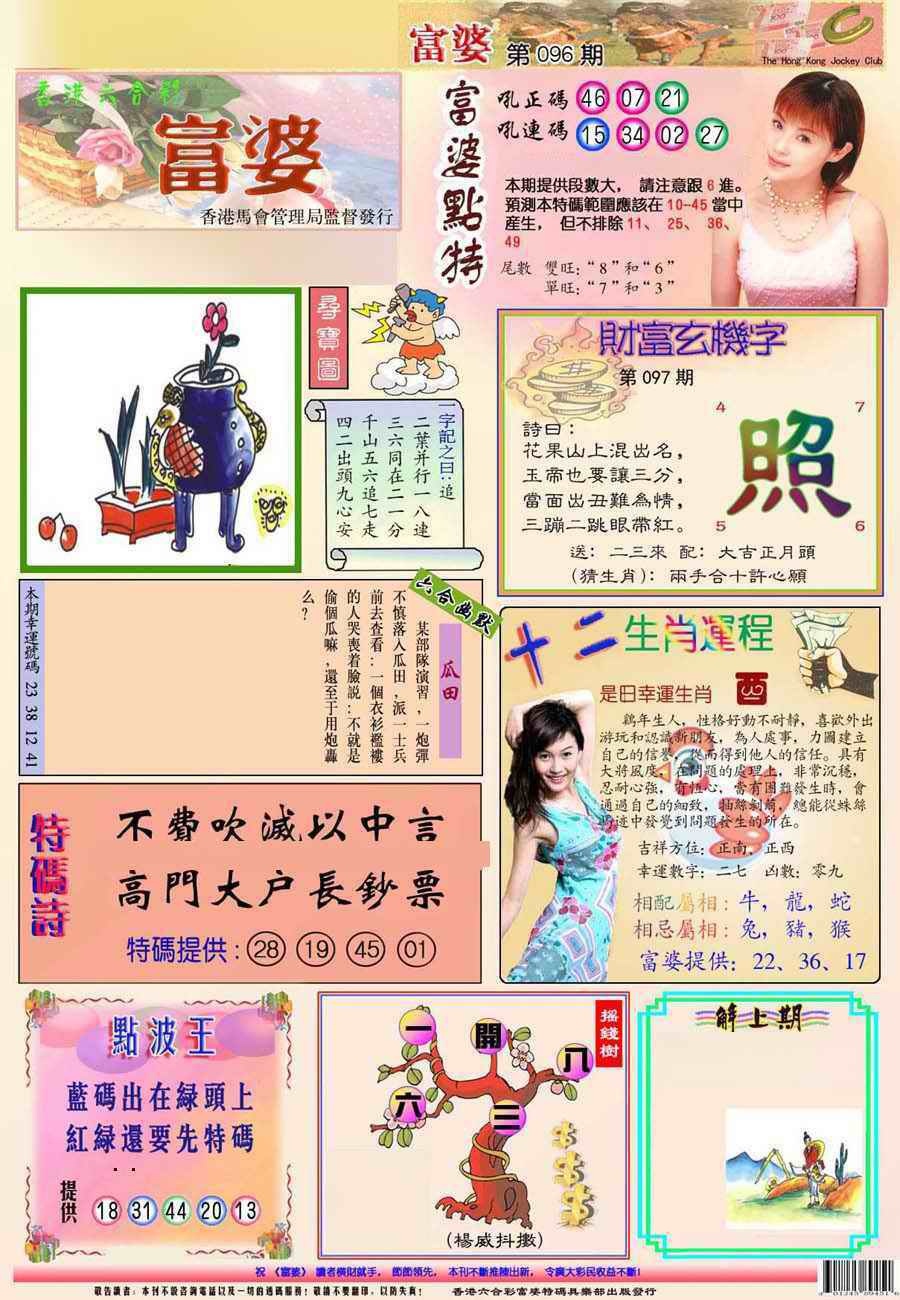 富婆 第096期
The Hong Kong Jockey Club
香港六合彩
富婆
香港馬會管理局監督發行
富婆點特
吼正碼 46 07 21
吼連碼 15 34 02 27
本期提供段數大， 請注意跟6進。
預測本特碼範圍應該在10-45當中
産生， 但不排除11、 25、 36、
49
尾數 雙旺:“8”和“6”
單旺:“7”和“3”
尋寶圖
一字記之曰:追
二葉并行一八連
三六同在二一分
千山五六追七走
四二出頭九心安
財富玄機字
第097期
詩曰:
花果山上混出名，
玉帝也要讓三分，
當面出丑難為情，
三蹦二跳眼帶紅。
4 7
照
5 6
送: 二三來 配: 大吉正月頭
(猜生肖): 兩手合十許心願
六合幽默
瓜田
某部隊演習，一炮彈
不慎落入瓜田，派一士兵
前去查看:一個衣衫襤褸
的人哭喪着臉説:不就是
偷個瓜嘛，還至于用炮轟
么?
本期幸運號碼 23 38 12 41
十二生肖運程
是日幸運生肖 酉
鷄年生人，性格好動不耐靜，喜歡外出
游玩和認識新朋友，為人處事，力圖建立
自己的信譽，從而得到他人的信任。具有
大將風度，在問題的處理上，非常沉穩，
忍耐心強，有恆心，當有困難發生時，會
通過自己的細致，抽絲剝繭，總能從蛛絲
馬迹中發覺到問題發生的所在。
吉祥方位: 正南、正西
幸運數字: 二七 凶數: 零九
相配屬相: 牛，龍，蛇
相忌屬相: 兔，豬，猴
富婆提供: 22、36、17
特碼詩
不費吹滅以中言
高門大户長鈔票
特碼提供: 28 19 45 01
點波王
藍碼出在緑頭上
紅緑還要先特碼
提供 18 31 44 20 13
摇錢樹
一 開 八
六 三
(楊威抖擻)
解上期
祝《富婆》讀者橫財就手， 節節領先， 本刊不斷推陳出新， 令廣大彩民收益不斷!
敬告讀者: 本刊不設咨詢電話以及一切的透碼服務! 敬請不要翻印，以防失真! 香港六合彩富婆特碼具樂部出版發行